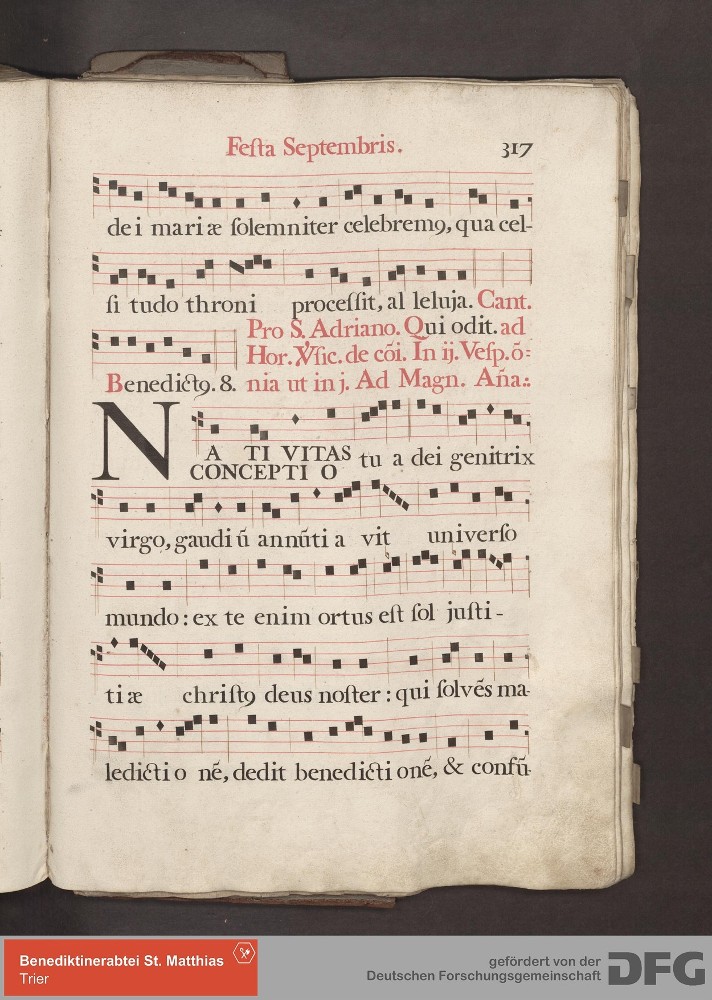 Feſta Septembris. 317
dei mariæ ſolemniter celebremꝯ, qua cel-
ſi tudo throni proceſſit, al leluja. Cant.
Pro S. Adriano. Qui odit. ad
Hor. ℣ſic. de cõi. In ij. Veſp. õ=
Benedictꝯ. 8. nia ut in j. Ad Magn. Añа.:
NA TI VITAS tu a dei genitrix
CONCEPTI O
virgo, gaudi ũ annũti a vit univerſo
mundo: ex te enim ortus eſt ſol juſti-
ti æ chriſtꝯ deus noſter: qui ſolvẽs ma-
ledicti o nẽ, dedit benedicti onẽ, & confũ-
Benediktinerabtei St. Matthias
Trier
gefördert von der
Deutschen Forschungsgemeinschaft
DFG